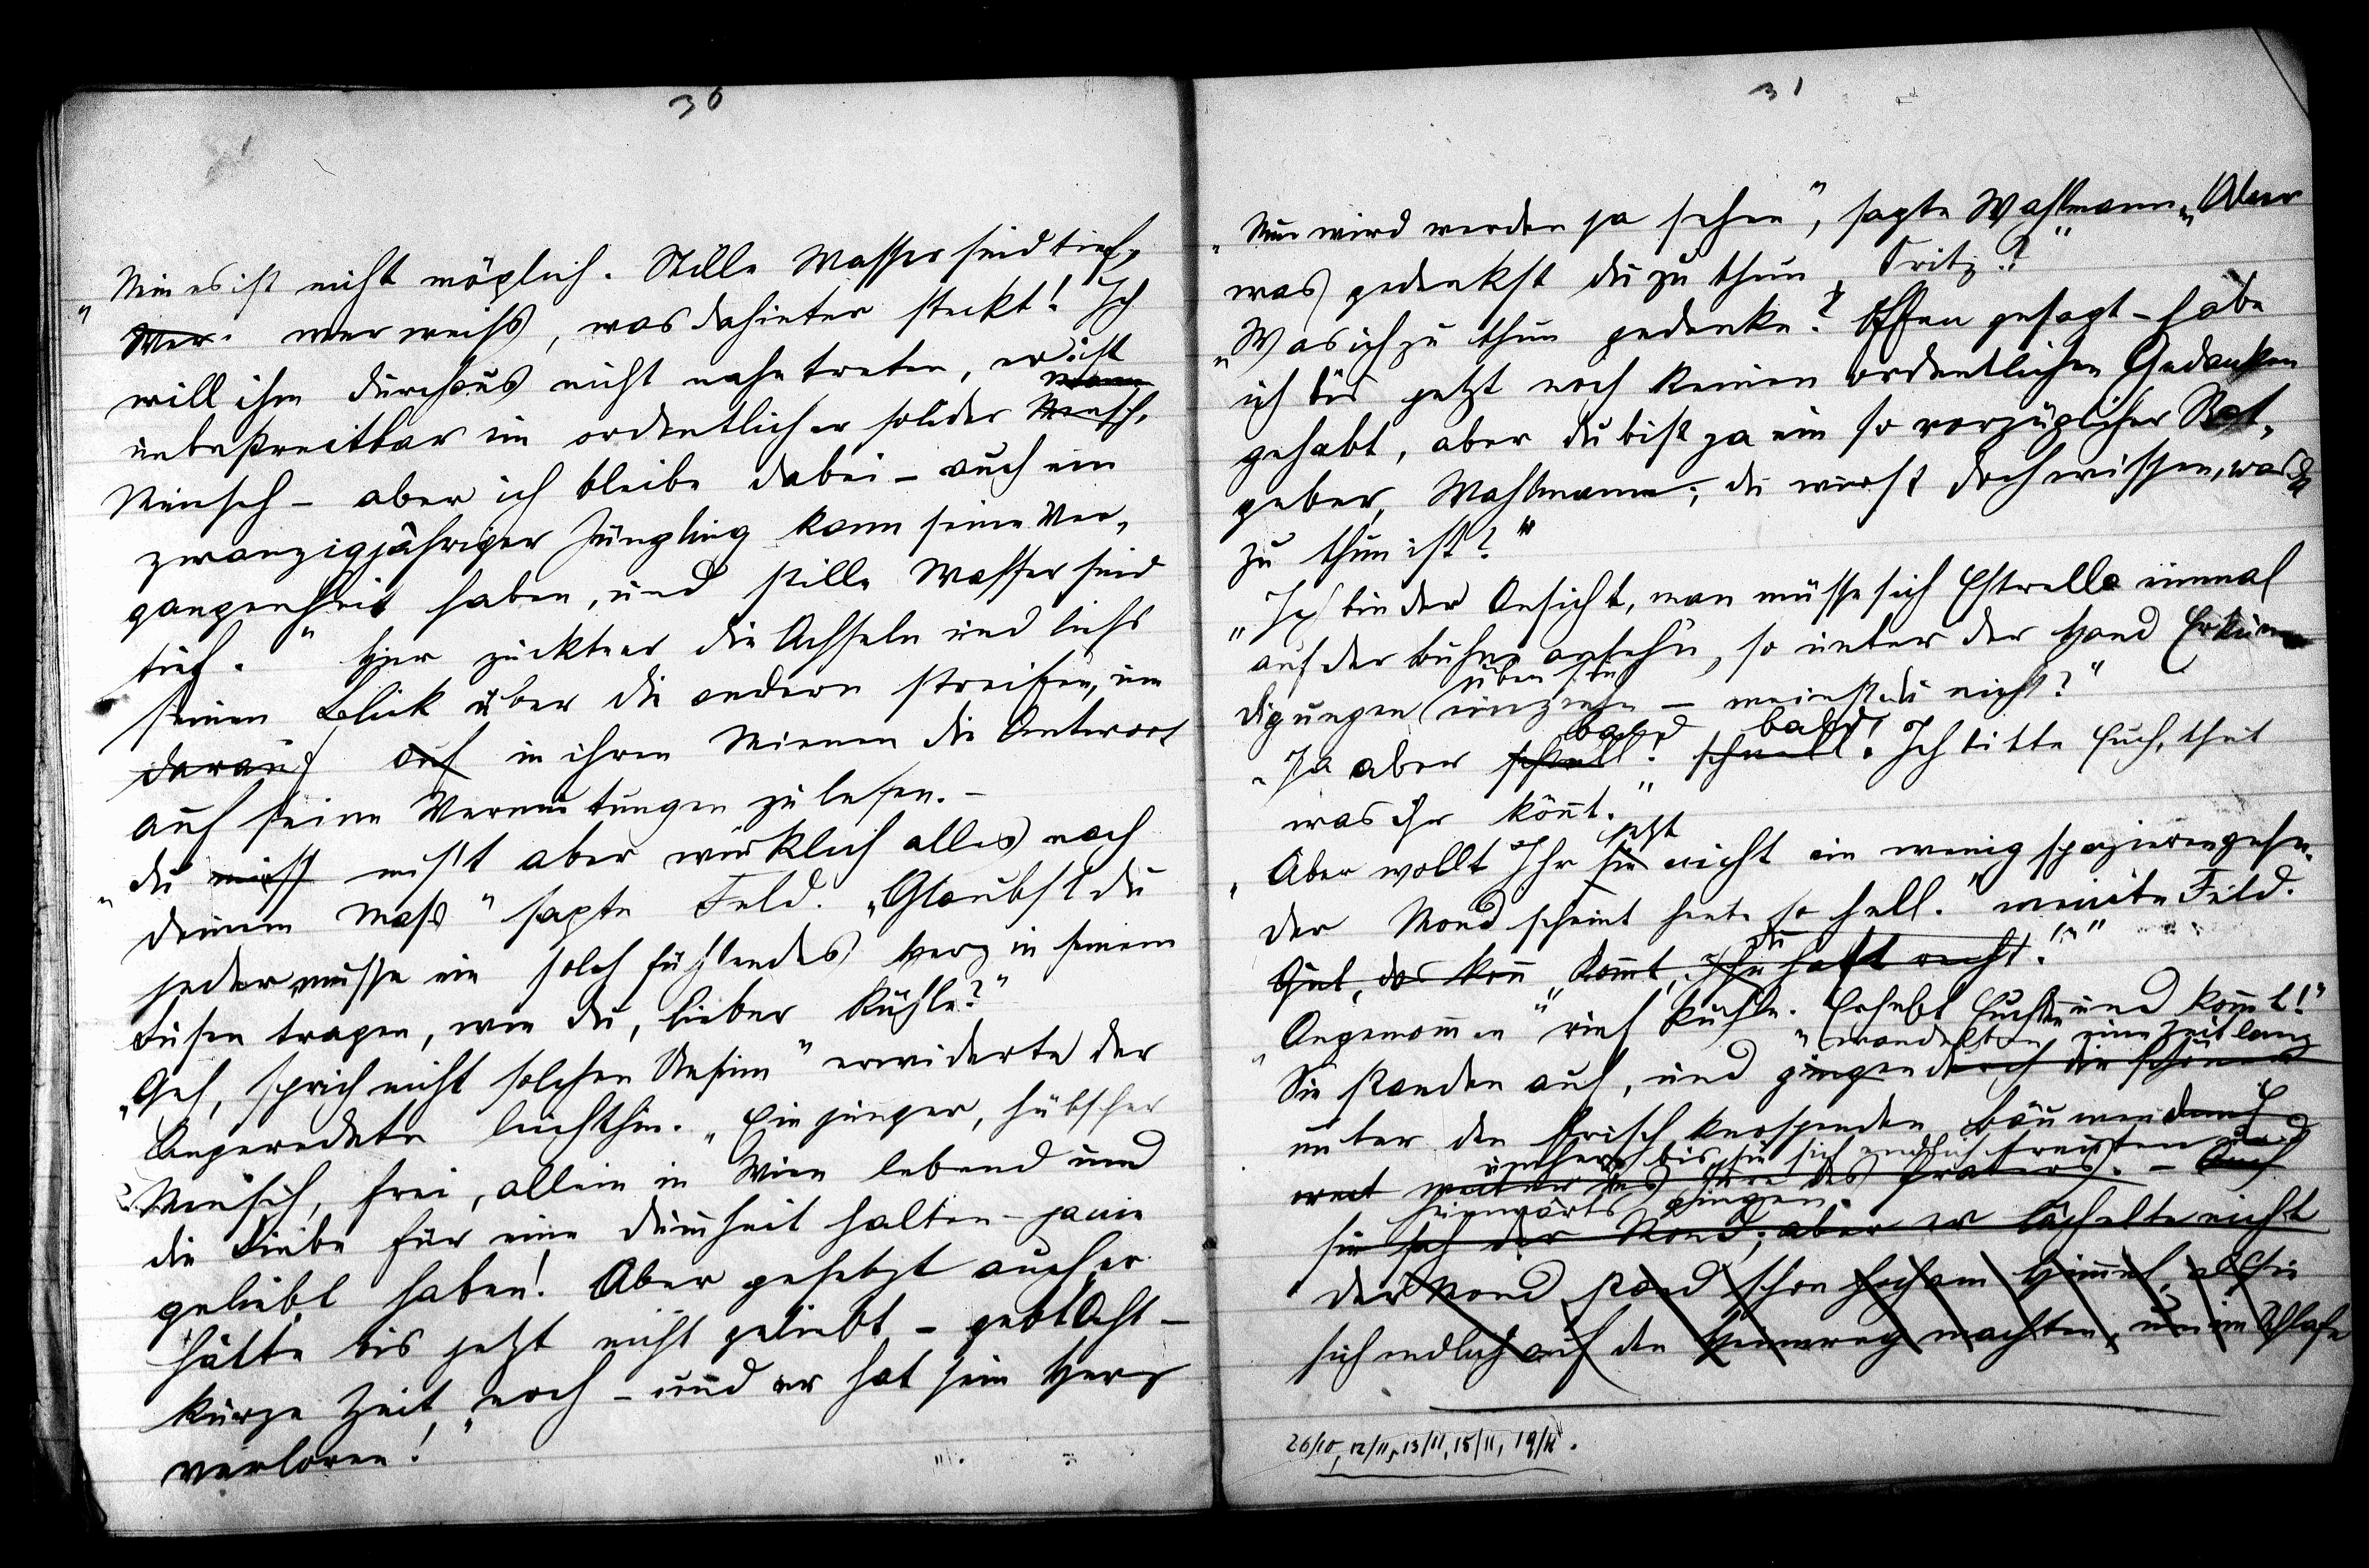 30
„Nein es ist nicht möglich. Stille Wasser sind tief,
Wer wer weiss, was dahinter steckt! Ich
will ihm durchaus nicht nahe treten, er ist
unbestreitbar ein ordentlicher solider Mensch,
Mensch – aber ich bleibe dabei – auch ein
zwanzigjähriger Jüngling kann seine Ver-
gangenheit haben, und stille Wasser sind
tief." Hier zuckte er die Achseln und liess
seinen Blick über die andern streifen, um
darauf auf in ihren Mienen die Antwort
auf seine Vermutungen zu lesen. –
„Du misst misst aber wirklich alles nach
deinem Mass" sagte Feld. „Glaubst du
jeder müsse ein solch fühlendes Herz in seinem
Busen tragen, wie du, lieber Kühle?"
„Geh, sprich nicht solchen Unsinn" erwiderte der
Angeredete leichthin. „Ein junger, hübscher
Mensch, frei, allein in Wien lebend und
die Liebe für eine Dummheit halten – ja nie
geliebt haben! Aber gesetzt auch er
hätte bis jetzt nicht geliebt – gebt Acht –
kurze Zeit noch – und er hat sein Herz
verloren!"
31
„Nun wird werden ja sehen", sagte Wahlmann „Aber
was gedenkst du zu thun, Fritz?"
„Was ich zu thun gedenke? Offen gesagt – habe
ich bis jetzt noch keinen ordentlichen Gedanken
gehabt, aber du bist ja ein so vorzüglicher Rat-
geber, Wahlmann; du wirst doch wissen, was da
zu thun ist?"
„Ich bin der Ansicht, man müsse sich Estrella einmal
auf der Bühne ansehn, so unter der Hand Erkun-
über sie
digungen einziehn – meinst du nicht?"
bald bald!
„Ja aber schnell! schnell. Ich bitte Euch, thut
was ihr könnt."
jetzt
„Aber wollt Ihr sie nicht ein wenig spazierengehn.
der Mond scheint heute so hell." meinte Feld.
du
Gut, das kön „Kommt, Ihr hast recht."
„Angenommen" rief Kühle. „Erhebt Euch und kommt!"
wandelten eine Zeit lang
Sie standen auf, und gingen durch die schönen
unter den frisch knospenden Bäumen
umher, bis sie sich endlich trennten und
weit des Praters. – Auch
heimwärts gingen.
sie sah der Mond; aber er lächelte nicht
der Mond stand schon hoch am Himmel, als sie
sich endlich auf den Heimweg machten, um im Schlafe
26/10, 12/11, 13/11, 15/11, 19/11.